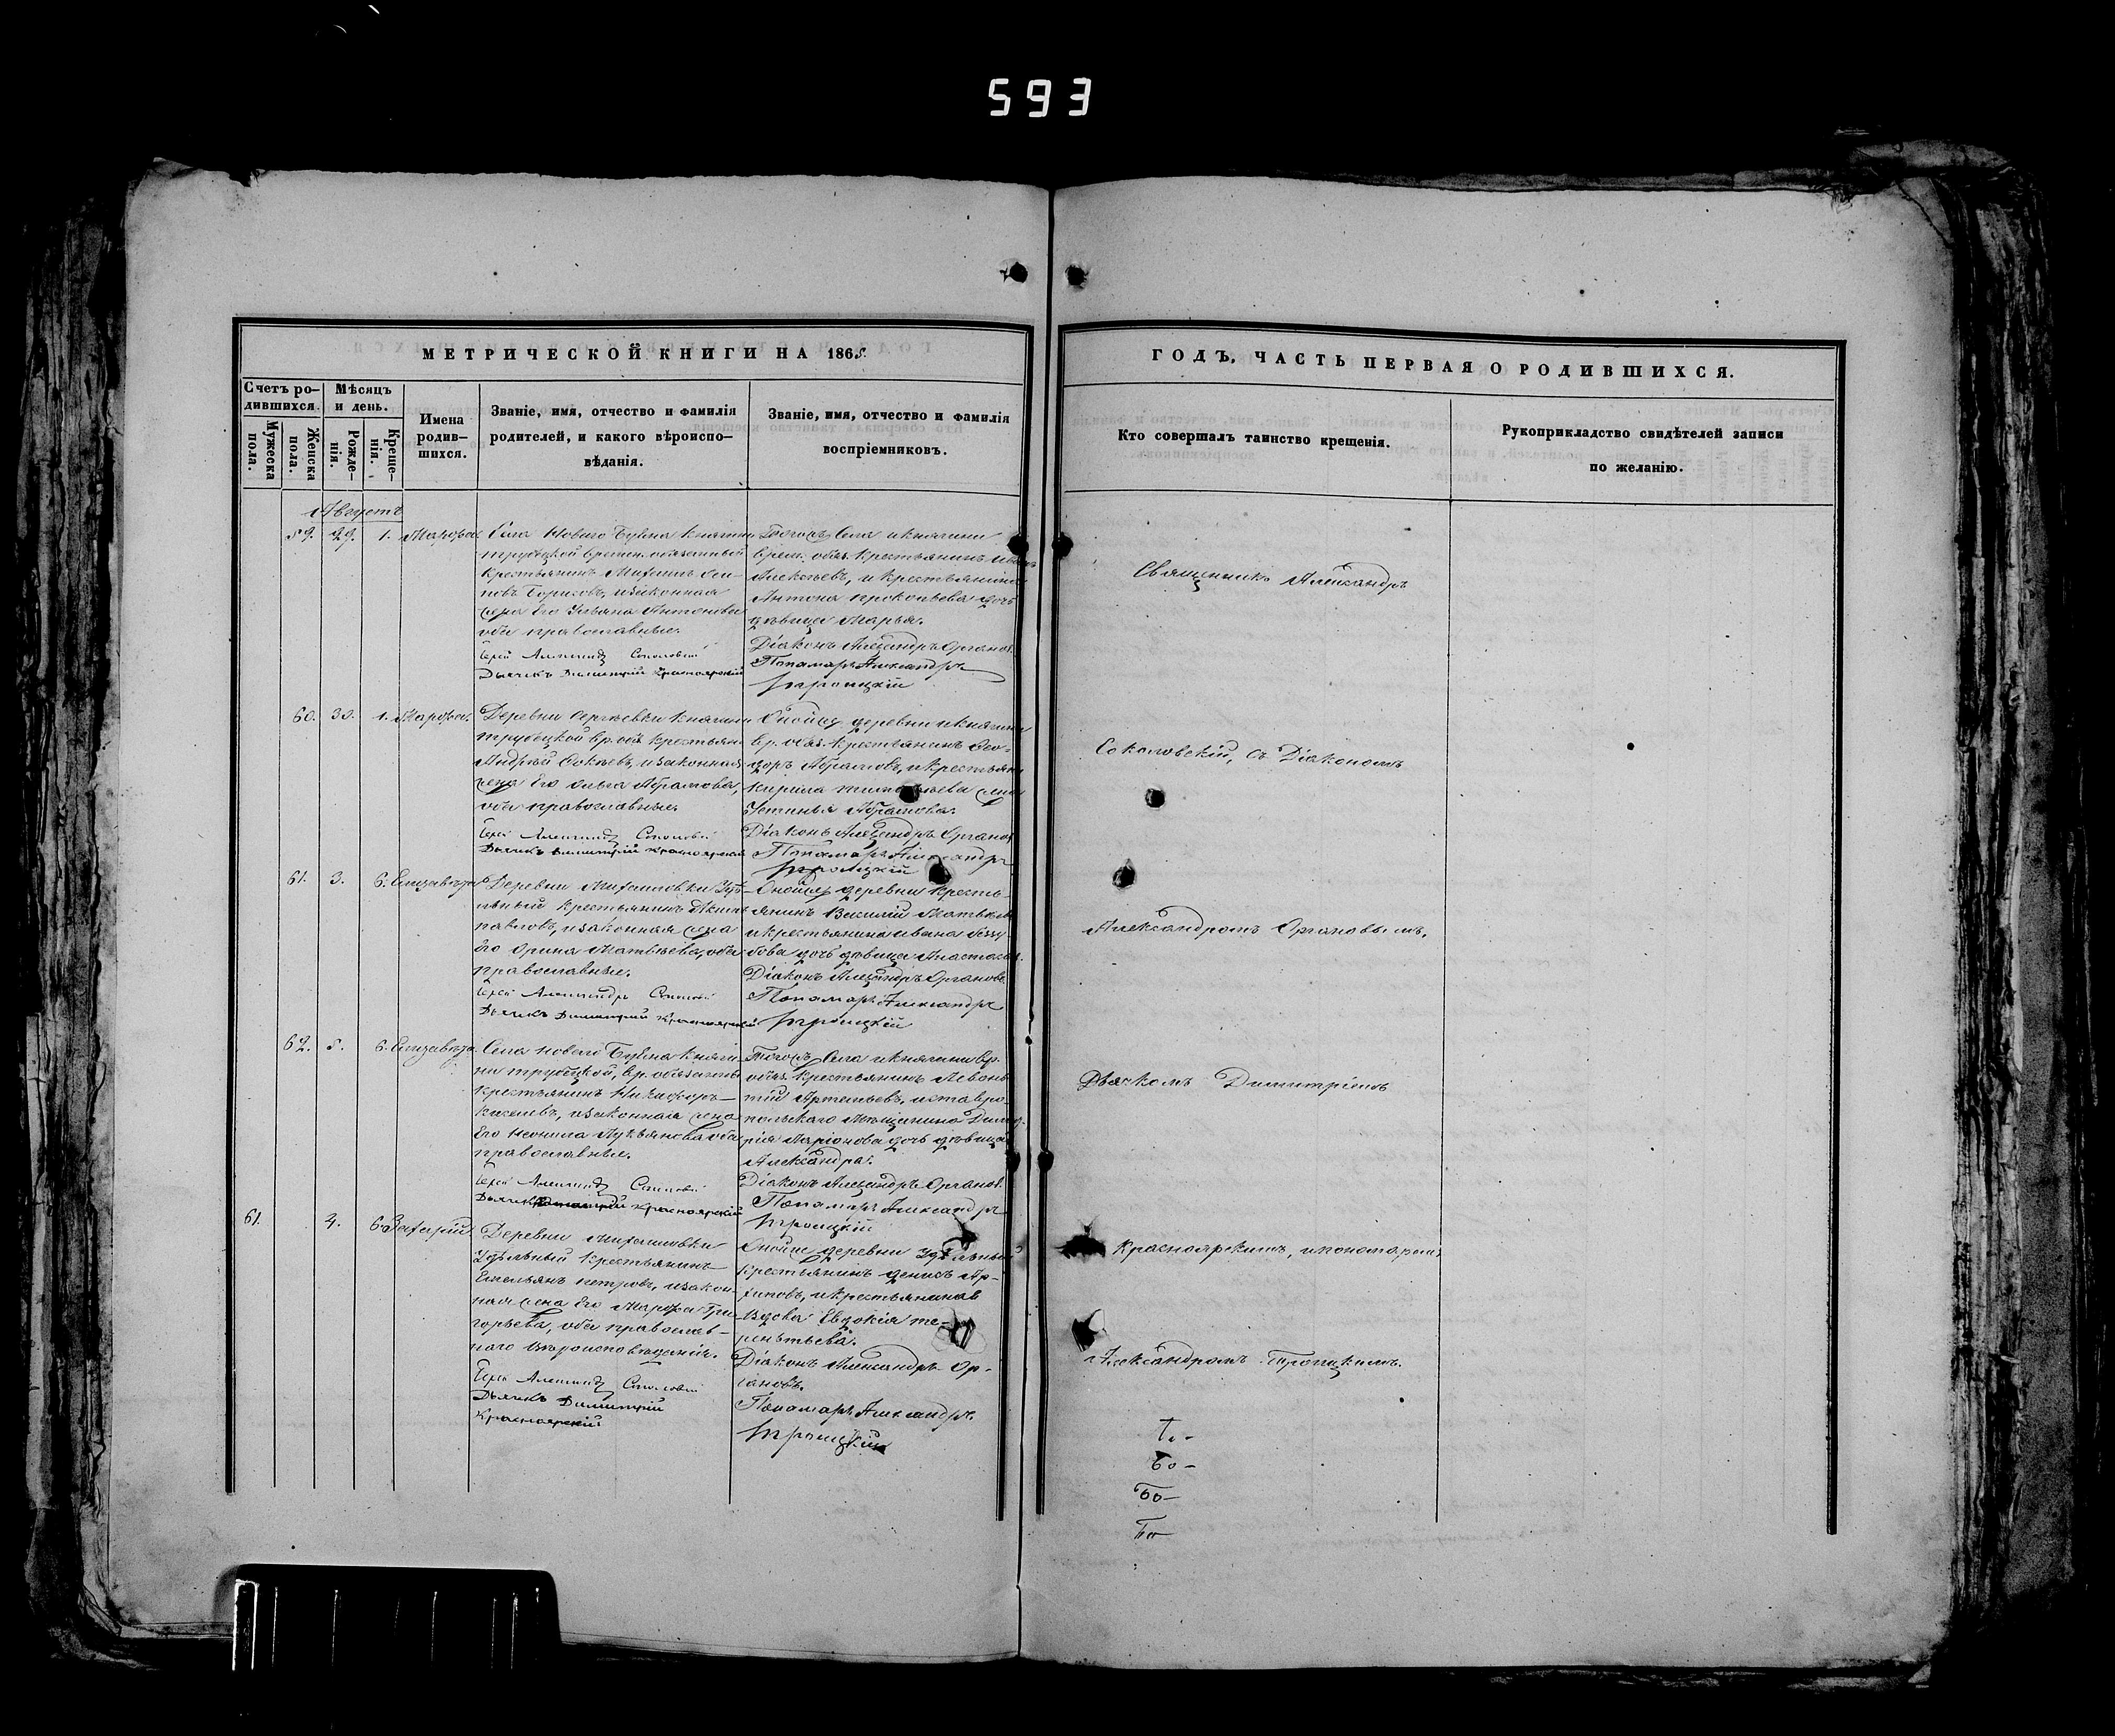 593
МЕТРИЧЕСКОЙ КНИГИ НА 1868
Счетъ ро-
дившихся.
Мужеска
пола.
Женска
пола.
Мѣсяцъ
и день.
Рожде-
нія.
Креще-
нія.
Имена
родив-
шихся.
Званіе, имя, отчество и фамилія
родителей, и какого вѣроиспо-
вѣданія.
Званіе, имя, отчество и фамилія
воспріемниковъ.
Августъ
59. 29. 1. Марфа
Села Новаго Буяна княгини
Трубецкой времен. обязанный
крестьянинъ
Борисовъ, и законная
жена его Ульяна Антонова
оба православные.
Іерей Александръ Соколовскій
Дьячекъ Димитрій Красноярскій
Тогожъ Села и княгини
врем. обяз. крестьянинъ
Алексѣевъ, и крестьянина
Антона Прокопьева дочь
дѣвица Марья.
Діаконъ Александръ Органовъ
Понамарь Александръ
Троицкій
60. 30. 1. Марфа.
Деревни Сергѣевки княгини
Трубецкой вр. обя. крестьян.
Андрей и законная
жена его Ольга Абрамова,
оба православные.
Іерей Александръ Соколовскій
Дьячекъ Димитрій Красноярскій
Оной же деревни и княгини
вр. обяз. крестьянинъ Ѳео-
доръ Абрамовъ, и крестьян
Кирила жена
Устинья Абрамова.
Діаконъ Александръ Органовъ
Понамарь Александръ
Троицкій
61. 3. 6. Елизавета
Деревни Михайловки Удѣ-
льный крестьянинъ
Павловъ, и законная жена
его Орина Матвѣева, оба
православные.
Іерей Александръ Соколовскій
Дьячекъ Димитрій Красноярскій
Оной же деревни кресть-
янинъ Василій Матвѣевъ
и крестьянина Ивана
дочь дѣвица Анастасья.
Діаконъ Александръ Органовъ
Понамарь Александръ
Троицкій
62. 5. 6. Елизавета.
Села Новаго Буяна княги-
ни Трубецкой, вр. обязанный
крестьянинъ Никифоръ
и законная жена
его Неонила Лукьянова оба
православные.
Іерей Александръ Соколовскій
Дьячекъ Димитрій Красноярскій
Тогожъ Села и княгини вр.
обяз. крестьянинъ Левон-
тій Артемьевъ, и ставро-
польскаго мѣщанина
дочь дѣвица
Александра.
Діаконъ Александръ Органовъ
Понамарь Александръ
Троицкій
61. 4. 6. Захарій
Деревни Михайловки
Удѣльный крестьянинъ
Емельянъ Петровъ, и закон-
ная жена его Марфа Гри-
горьева, оба православ-
наго вѣроисповѣданія.
Іерей Александръ Соколовскій
Дьячекъ Димитрій
Красноярскій
Оной же деревни Удѣльный
крестьянинъ Денисъ Ар-
хиповъ, и крестьянская
вдова Евдокія Те-
рентьева.
Діаконъ Александръ Ор-
гановъ.
Понамарь Александръ
Троицкій
ГОДЪ, ЧАСТЬ ПЕРВАЯ О РОДИВШИХСЯ.
Кто совершалъ таинство крещенія.
Рукоприкладство свидѣтелей записи
по желанію.
Священникъ Александръ
Соколовскій, съ Діакономъ
Александромъ Органовымъ,
Дьячкомъ Димитріемъ
Красноярскимъ, и пономаремъ
Александромъ Троицкимъ.